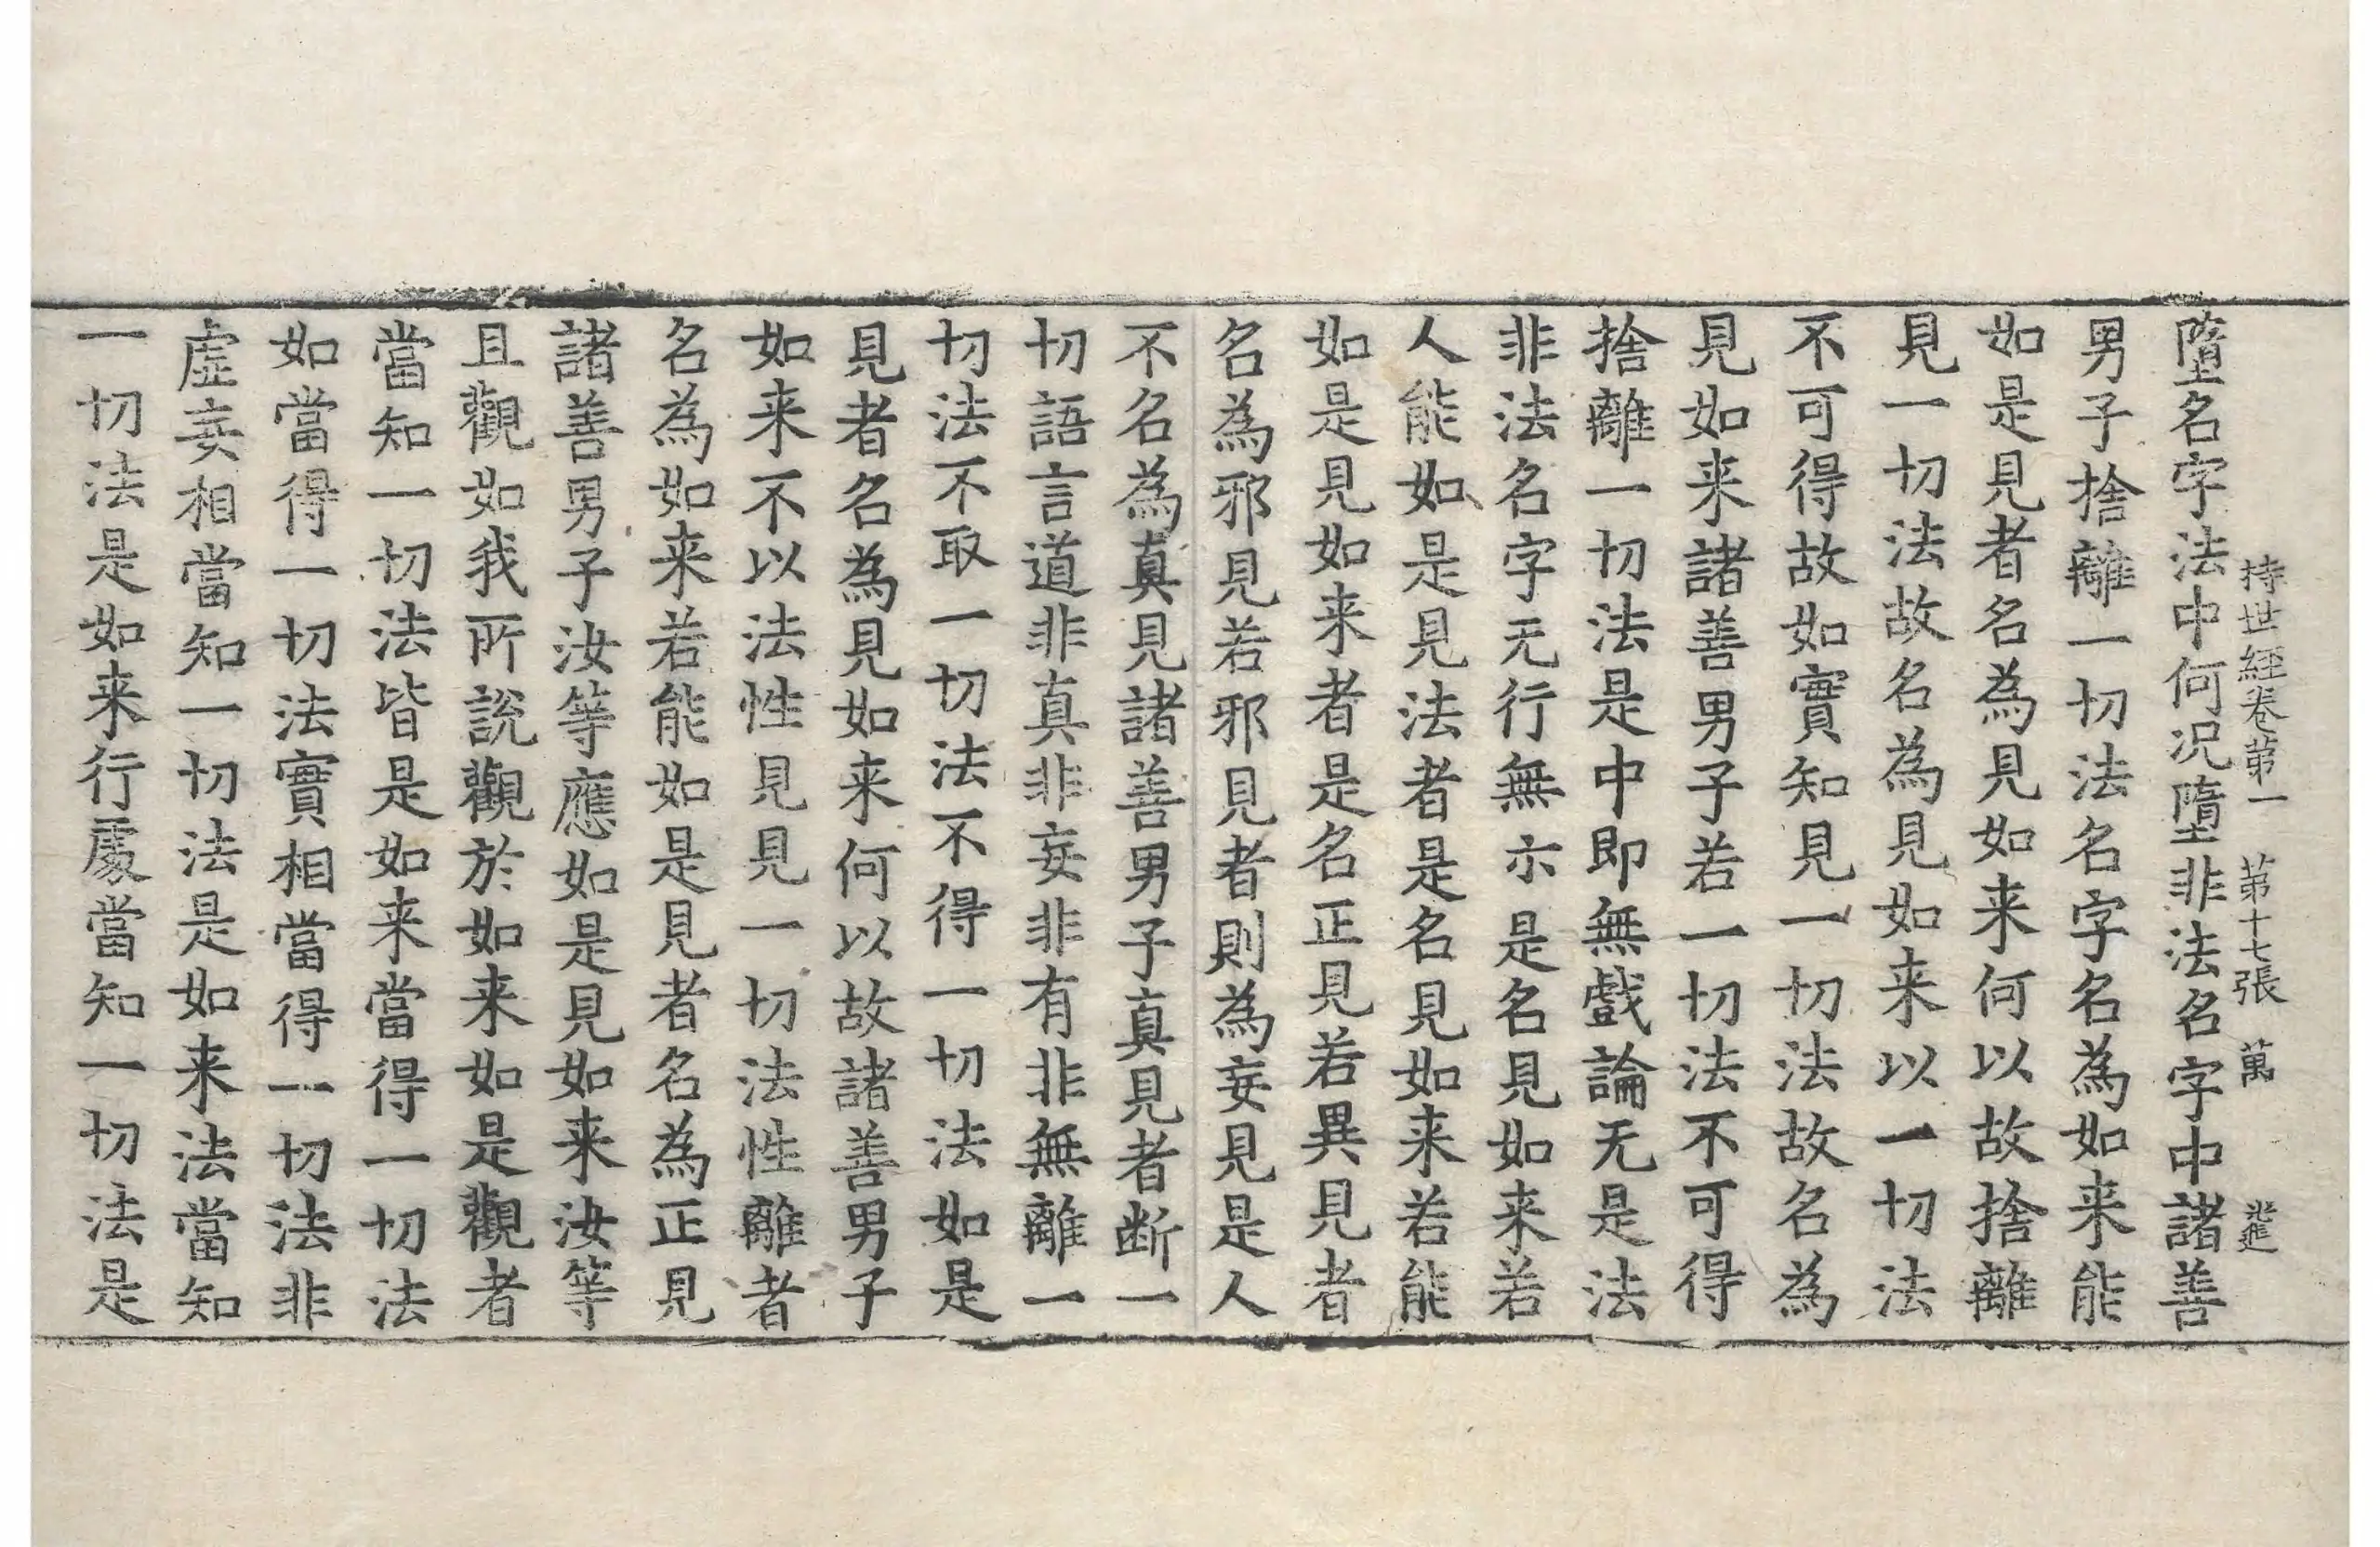 持世經卷苐一 苐十七張 萬 進
墮名字法中何况墮非法名字中諸善
男子捨離一切法名字名為如来能
如是見者名為見如来何以故捨離
見一切法故名為見如来以一切法
不可得故如實知見一切法故名為
見如来諸善男子若一切法不可得
捨離一切法是中即無戲論无是法
非法名字无行無示是名見如来若
人能如是見法者是名見如来若能
如是見如来者是名正見若異見者
名為邪見若邪見者則為妄見是人
不名為真見諸善男子真見者断一
切語言道非真非妄非有非無離一
切法不取一切法不得一切法如是
見者名為見如来何以故諸善男子
如来不以法性見見一切法性離者
名為如来若能如是見者名為正見
諸善男子汝等應如是見如来汝等
且觀如我所說觀於如来如是觀者
當知一切法皆是如来當得一切法
如當得一切法實相當得一切法非
虛妄相當知一切法是如来法當知
一切法是如来行處當知一切法是